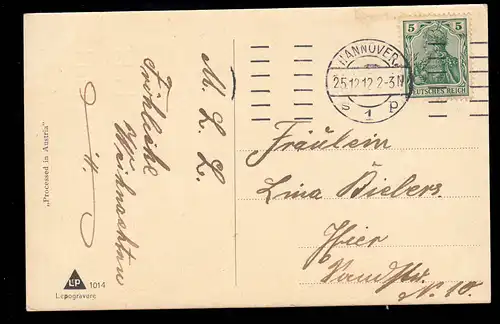 M. L. L.
Fröhliche
Weihnachten
"Processed in Austria"
LP 1014
Lepogravure
HANNOVER
25.12.12.2-3N
s 1 p
5 5
DEUTSCHES REICH
Fräulein
Lina Bielers
Hier
Sandstr.
N. 10.